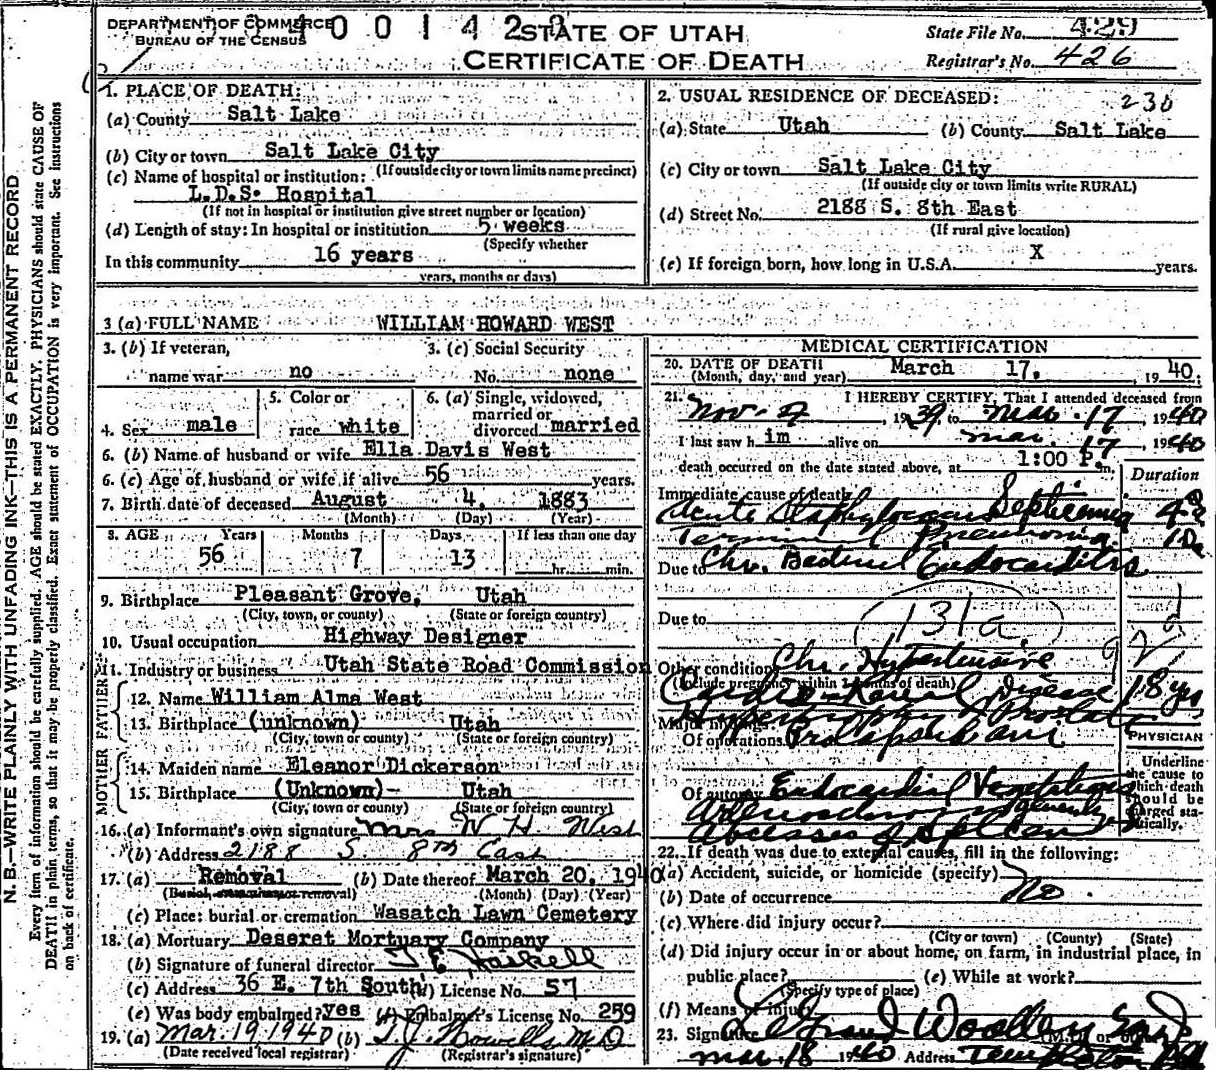 DEPARTMENT OF COMMERCE
BUREAU OF THE CENSUS
STATE OF UTAH
CERTIFICATE OF DEATH
State File No. 429
Registrar's No. 426
N. B.—WRITE PLAINLY WITH UNFADING INK—THIS IS A PERMANENT RECORD
Every item of information should be carefully supplied. AGE should be stated EXACTLY. PHYSICIANS should state CAUSE OF
DEATH in plain terms, so that it may be properly classified. Exact statement of OCCUPATION is very important. See instructions
on back of certificate.
1. PLACE OF DEATH:
(a) County Salt Lake
(b) City or town Salt Lake City
(If outside city or town limits name precinct)
(c) Name of hospital or institution:
L.D.S. Hospital
(If not in hospital or institution give street number or location)
(d) Length of stay: In hospital or institution 5 weeks
(Specify whether
In this community 16 years
years, months or days)
2. USUAL RESIDENCE OF DECEASED: 230
(a) State Utah (b) County Salt Lake
(c) City or town Salt Lake City
(If outside city or town limits write RURAL)
(d) Street No. 2188 S. 8th East
(If rural give location)
(e) If foreign born, how long in U.S.A. X years.
3 (a) FULL NAME WILLIAM HOWARD WEST
3. (b) If veteran, name war no
3. (c) Social Security No. none
4. Sex male
5. Color or race white
6. (a) Single, widowed, married or divorced married
6. (b) Name of husband or wife Ella Davis West
6. (c) Age of husband or wife if alive 56 years.
7. Birth date of deceased August 4, 1883
(Month) (Day) (Year)
8. AGE Years Months Days If less than one day
56 7 13 hr. min.
9. Birthplace Pleasant Grove, Utah
(City, town, or county) (State or foreign country)
10. Usual occupation Highway Designer
11. Industry or business Utah State Road Commission
FATHER
12. Name William Alma West
13. Birthplace (unknown) Utah
(City, town or county) (State or foreign country)
MOTHER
14. Maiden name Eleanor Dickerson
15. Birthplace (Unknown)- Utah
(City, town or county) (State or foreign country)
16. (a) Informant's own signature Mrs W H West
(b) Address 2188 S. 8th East
17. (a) Removal (b) Date thereof March 20, 1940
(Burial, cremation or removal) (Month) (Day) (Year)
(c) Place: burial or cremation Wasatch Lawn Cemetery
18. (a) Mortuary Deseret Mortuary Company
(b) Signature of funeral director T. E. Haskell
(c) Address 36 E. 7th South (d) License No. 57
(e) Was body embalmed? yes (f) Embalmer's License No. 259
19. (a) Mar. 19 1940 (b) T. J. Howells M.D
(Date received local registrar) (Registrar's signature)
MEDICAL CERTIFICATION
20. DATE OF DEATH March 17, 1940.
(Month, day, and year)
21. I HEREBY CERTIFY, That I attended deceased from
Nov. 1939, to Mar. 17, 1940
I last saw him alive on Mar. 17 1940
death occurred on the date stated above, at 1:00 P.m.
Duration
Immediate cause of death
Acute Staphylococcus Septicemia
Terminal Pneumonia
Due to Chr. Bacterial Endocarditis
Due to
131a
Other conditions Chr. Hypertensive
(Include pregnancy within 3 months of death)
Cardio-Renal Disease 18 yrs
Hypertrophy of Prostate
Of operations
PHYSICIAN
Underline
the cause to
which death
should be
charged sta-
tistically.
Of autopsy Endocardial Vegetations
Abcesses of Spleen
22. If death was due to external causes, fill in the following:
(a) Accident, suicide, or homicide (specify)
(b) Date of occurrence No
(c) Where did injury occur?
(City or town) (County) (State)
(d) Did injury occur in or about home, on farm, in industrial place, in
public place? (e) While at work?
(Specify type of place)
(f) Means of injury
23. Signature LeGrand Woolley
(M.D. or other)
Mar 18 1940 Address Templeton